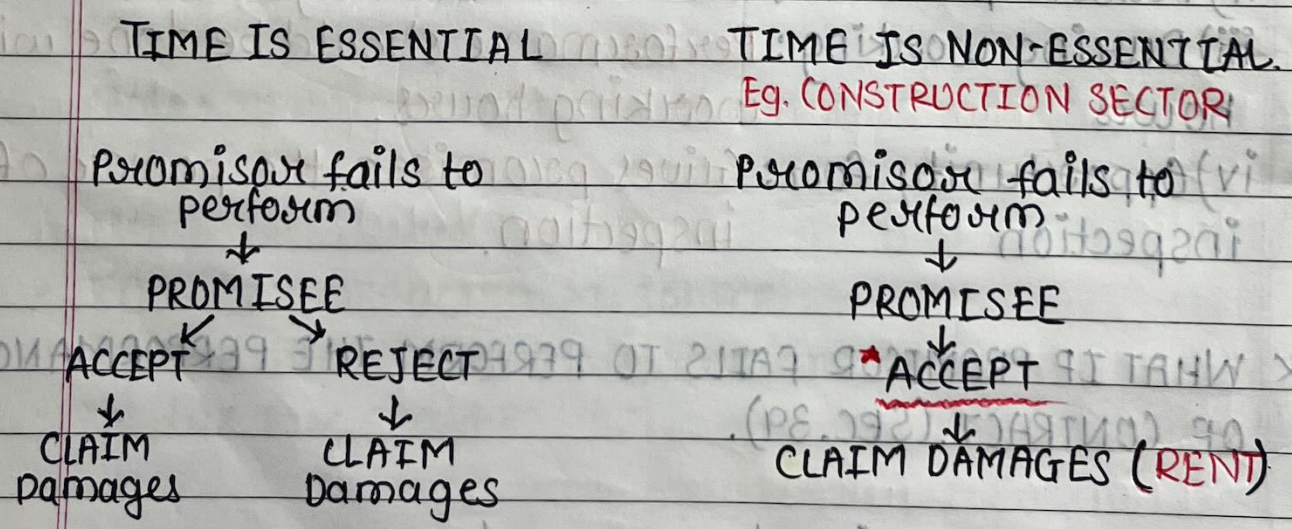 TIME IS ESSENTIAL
Promisor fails to
perform
↓
PROMISEE
↙ ↘
ACCEPT REJECT
↓ ↓
CLAIM CLAIM
Damages Damages
TIME IS NON-ESSENTIAL.
Eg. CONSTRUCTION SECTOR
Promisor fails to
perform
↓
PROMISEE
↓
*ACCEPT
↓
CLAIM DAMAGES (RENT)